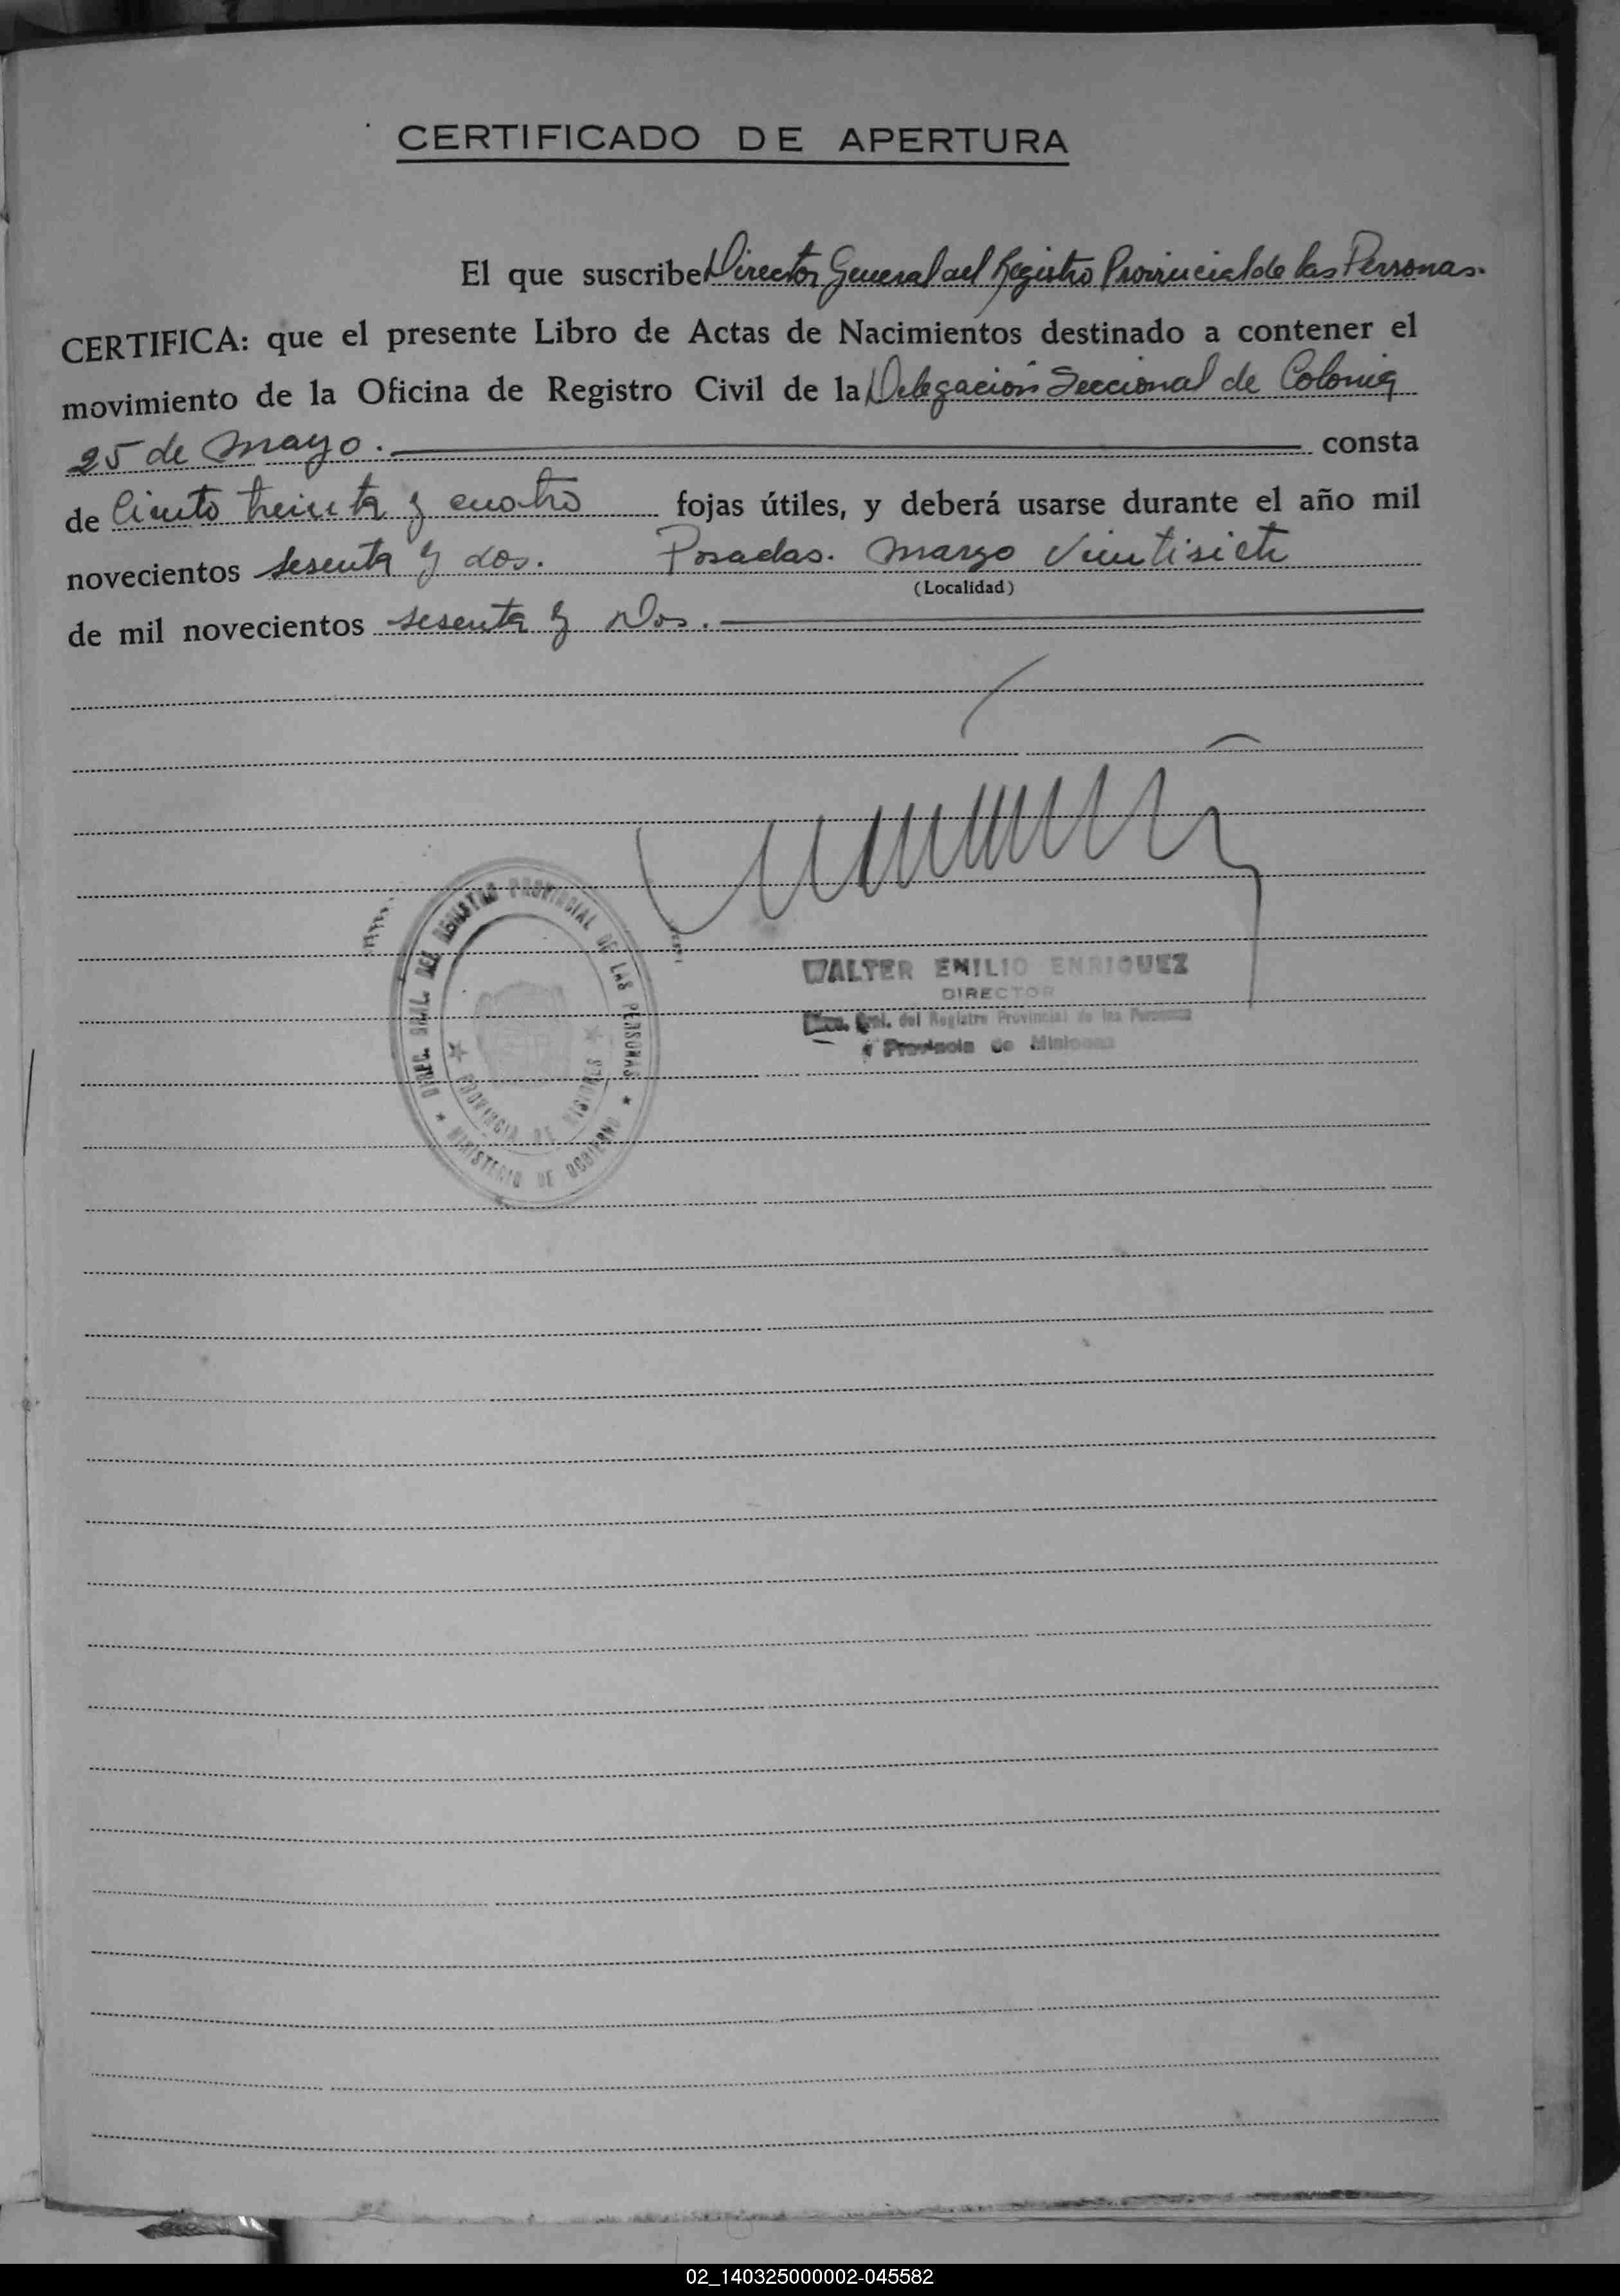 CERTIFICADO DE APERTURA
El que suscribe Director General del Registro Provincial de las Personas.
CERTIFICA: que el presente Libro de Actas de Nacimientos destinado a contener el
movimiento de la Oficina de Registro Civil de la Delegación Seccional de Colonia
25 de Mayo. consta
de Ciento treinta y cuatro fojas útiles, y deberá usarse durante el año mil
novecientos sesenta y dos. Posadas. Marzo Veintisiete
(Localidad)
de mil novecientos sesenta y Dos.
DIREC. GRAL. DEL REGISTRO PROVINCIAL DE LAS PERSONAS
PROVINCIA DE MISIONES
MINISTERIO DE GOBIERNO
WALTER EMILIO ENRIQUEZ
DIRECTOR
Gral. del Registro Provincial de las Personas
Provincia de Misiones
02_140325000002-045582